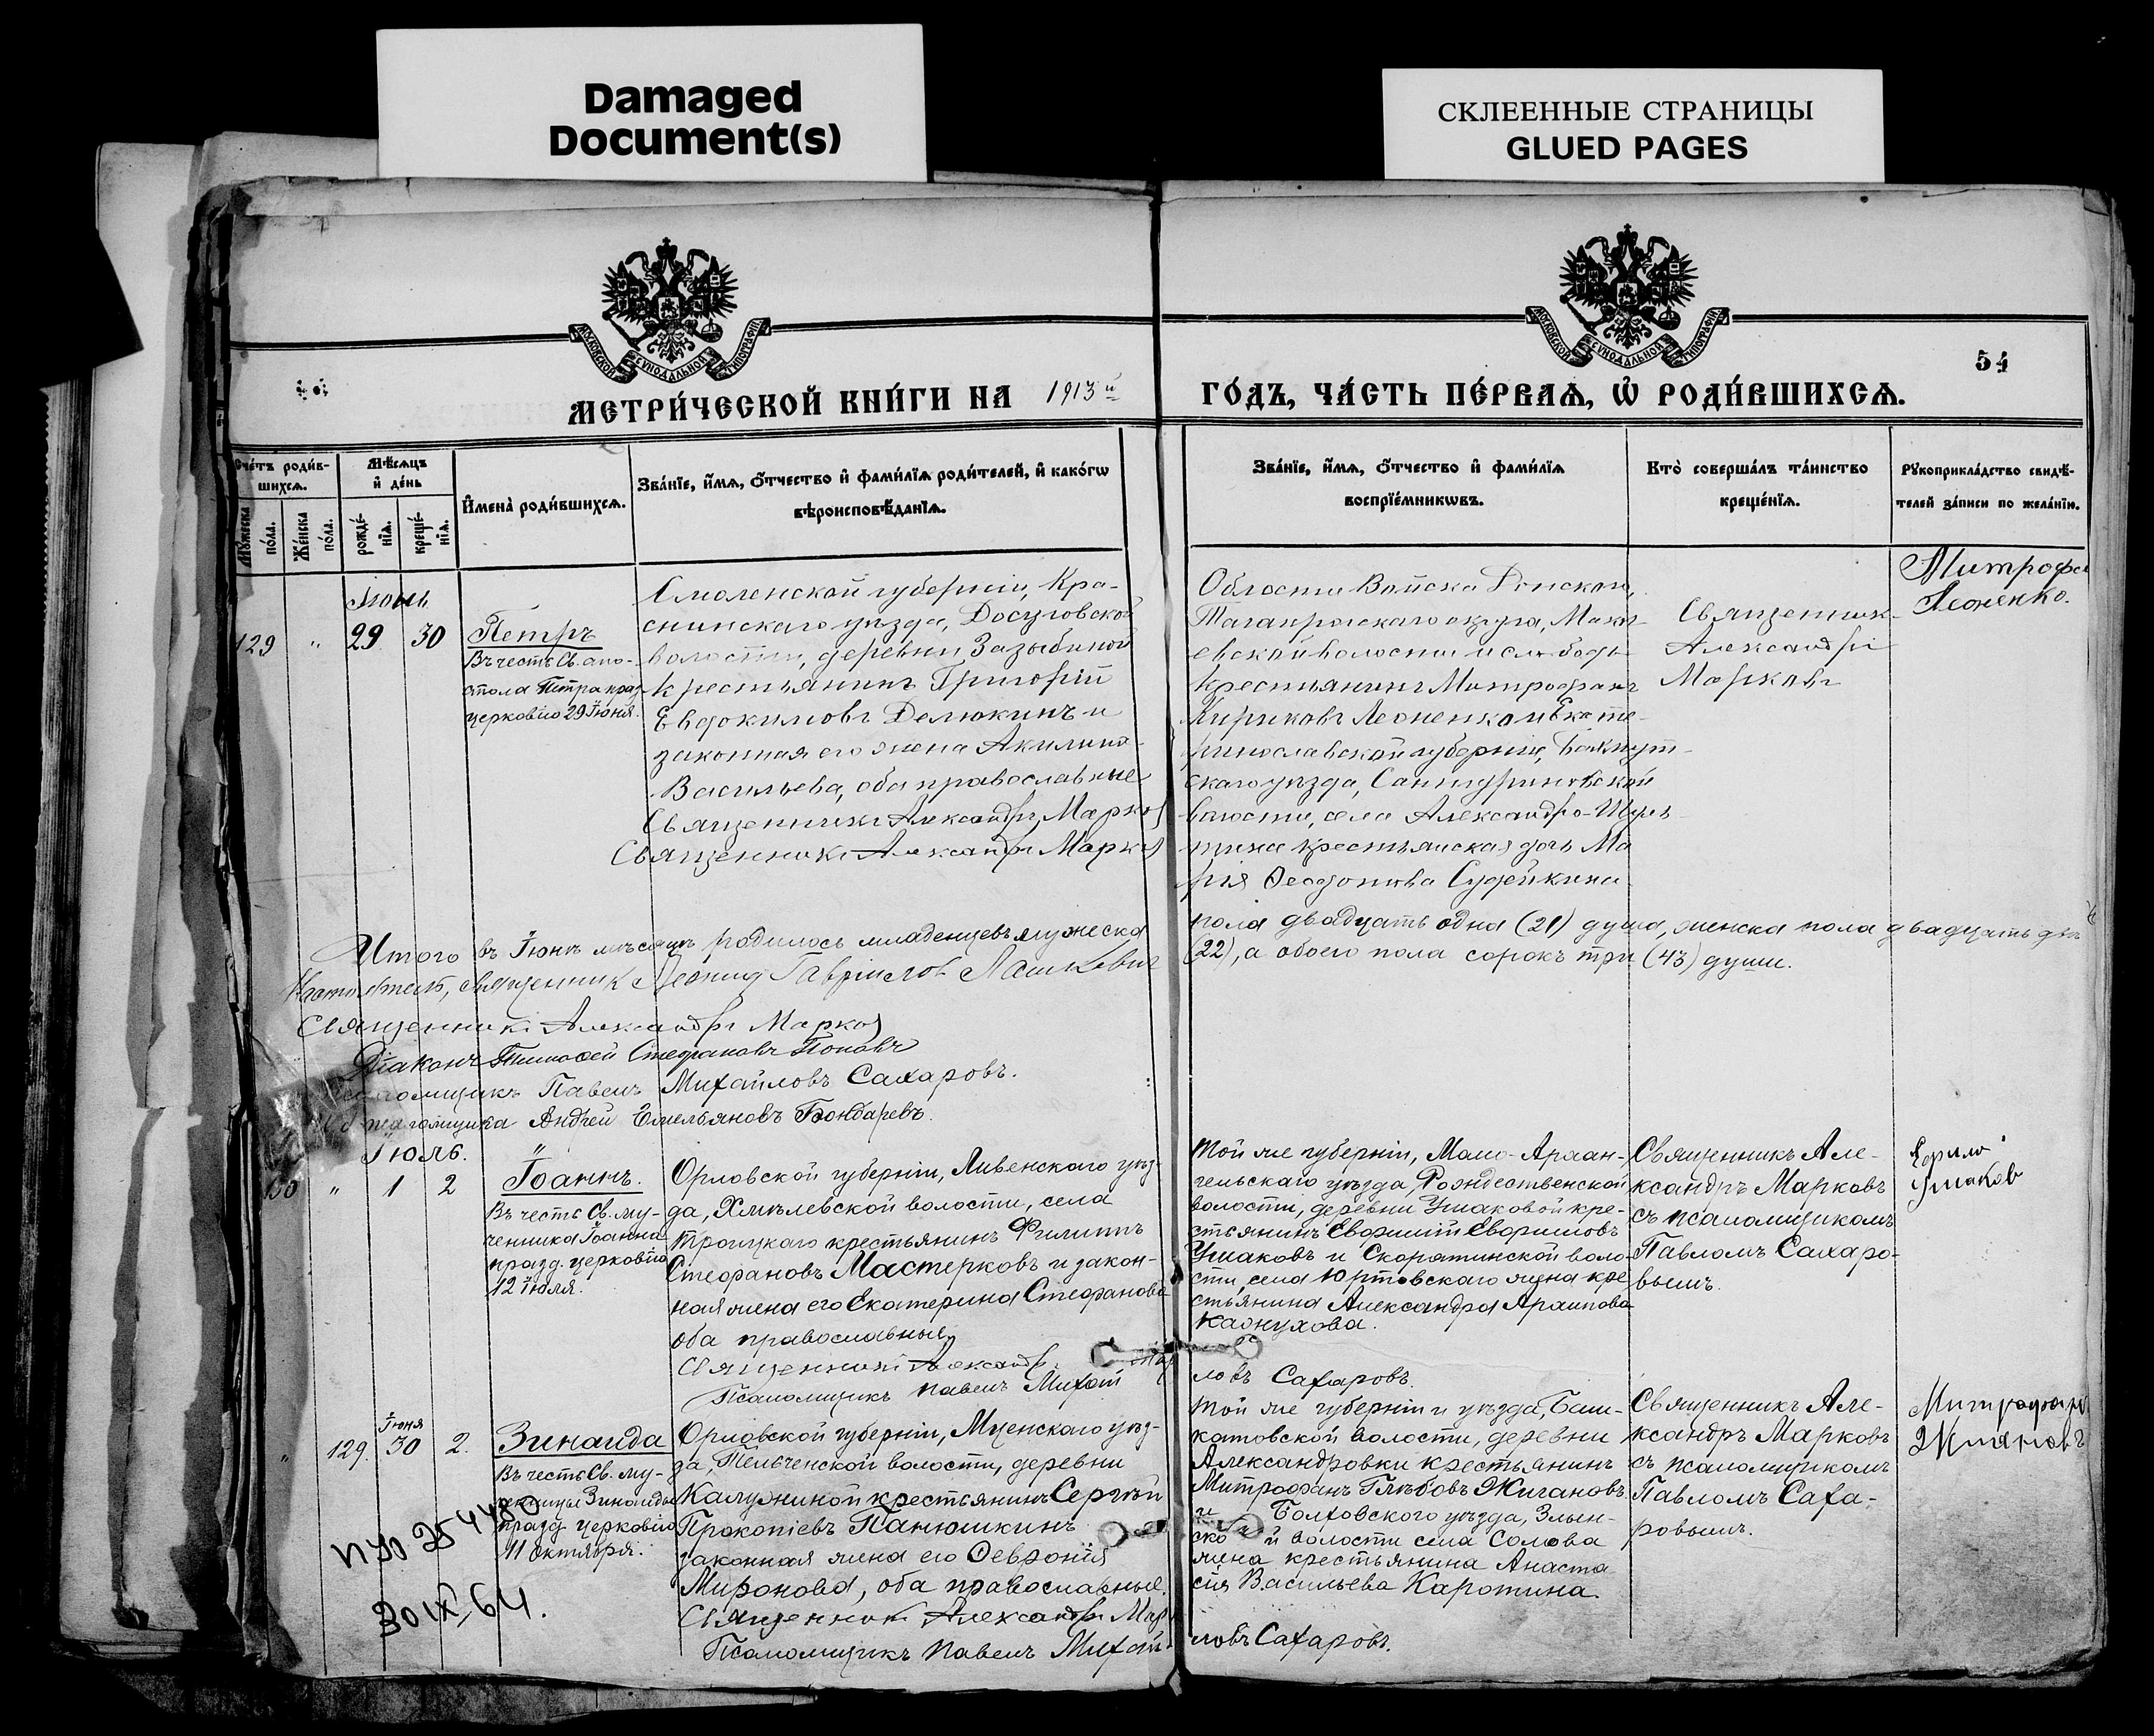 Damaged
Document(s)
СКЛЕЕННЫЕ СТРАНИЦЫ
GLUED PAGES
МОСКОВСКОЙ СѴНОДАЛЬНОЙ ТИПОГРАФІИ
МОСКОВСКОЙ СѴНОДАЛЬНОЙ ТИПОГРАФІИ
54
МЕТРИ́ЧЕСКОЙ КНИ́ГИ НА 1913 й
ГО́ДЪ, ЧА́СТЬ ПЕ́РВАѦ, Ѡ҆ РОДИ́ВШИХСѦ.
Сче́тъ роди́в-
шихсѧ.
Мѣ́сѧцъ
и҆ де́нь
Му́жеска
по́ла.
Же́нска
по́ла.
рожде́-
нїѧ.
креще́-
нїѧ.
И҆мена̀ роди́вшихсѧ.
Зва́нїе, и҆́мѧ, ѻ҆́тчество и҆ фами́лїѧ роди́телей, и҆ како́гѡ
вѣроисповѣ́данїѧ.
Зва́нїе, и҆́мѧ, ѻ҆́тчество и҆ фами́лїѧ
воспрїе́мникѡвъ.
Кто̀ соверша́лъ та́инство
креще́нїѧ.
Рꙋкоприкла́дство свидѣ́-
телей за́писи по жела́нїю.
Іюнь
129 " 29 30
Петръ
Въ честь Св. апо-
стола Петра празд.
церковію 29 Іюня.
Смоленской губерніи, Кра-
снинскаго уѣзда, Досуговской
волости, деревни Зазыбиной
крестьянинъ Григорій
Евдокимовъ Делюкинъ и
законная его жена Акилина
Васильева, оба православные
Священникъ Александръ Марков
Священникъ Александръ Марков
Области Войска Донского,
Таганрогскаго округа, Маке-
евской волости и слободы
крестьянинъ Митрофанъ
Кириковъ Леоненко и Екате-
ринославской губерніи, Бахмут-
скаго уѣзда, Сантуриновской
волости, села Александро-Шуль
тина крестьянская дочь Ма
рія Ѳеодотова Судейкина
Священникъ
Александръ
Марковъ
Митрофа
Леоненко.
Итого въ Іюнѣ мѣсяцѣ родилось младенцевъ мужеска
пола двадцать одна (21) душа, женска пола двадцать двѣ
(22), а обоего пола сорокъ три (43) души.
Настоятель, священник Леонид Гавриилов Лашкевич
Священникъ Александръ Марков
Діаконъ Тимоѳей Стефановъ Поповъ
Псаломщикъ Павелъ Михайловъ Сахаровъ.
псаломщика Андрей Емельяновъ Бондаревъ.
Іюль.
130 " 1 2
Іоаннъ.
Въ честь Св. му-
ченика Іоанна
празд. церковію
12 іюля.
Орловской губерніи, Ливенскаго уѣз-
да, Хмѣлевской волости, села
Троицкаго крестьянинъ Филиппъ
Стефановъ Мастерковъ и закон-
ная жена его Екатерина Стефанова
оба православные
Священникъ Александръ Мар
Псаломщикъ Павелъ Михай
Той же губерніи, Мало-Архан-
гельскаго уѣзда, Рождественской
волости, деревни Ушаковой кре-
стьянинъ
Ушаковъ и Скарятинской воло-
сти, села Юртовскаго жена кре
стьянина Александра Архипова
ловъ Сахаровъ.
Священникъ Але-
ксандръ Марковъ
съ псаломщикомъ
Павломъ Сахаро-
вымъ.
Ушаков
" 129. Іюня 30 2.
Зинаида
Въ честь Св. му-
ченицы Зинаиды
празд. церковію
11 октября.
Орловской губерніи, Мценскаго уѣз-
да, Тельченской волости, деревни
Калужиной крестьянинъ Сергѣй
Прокопіевъ Панюшкинъ
законная жена его Ѳеѵронія
Миронова, оба православные.
Священникъ Александръ Мар
Псаломщикъ Павелъ Михай-
Той же губерніи и уѣзда, Баш-
катовской волости, деревни
Александровки крестьянинъ
Митрофанъ Глѣбовъ Жигановъ
и Болховского уѣзда, Злын-
ской волости села Сомова
жена крестьянина Анаста
сія Васильева Каротина
ловъ Сахаровъ.
Священникъ Але-
ксандръ Марковъ
съ псаломщикомъ
Павломъ Саха-
ровымъ.
Митрофанъ
Жигановъ
30 IX 64.